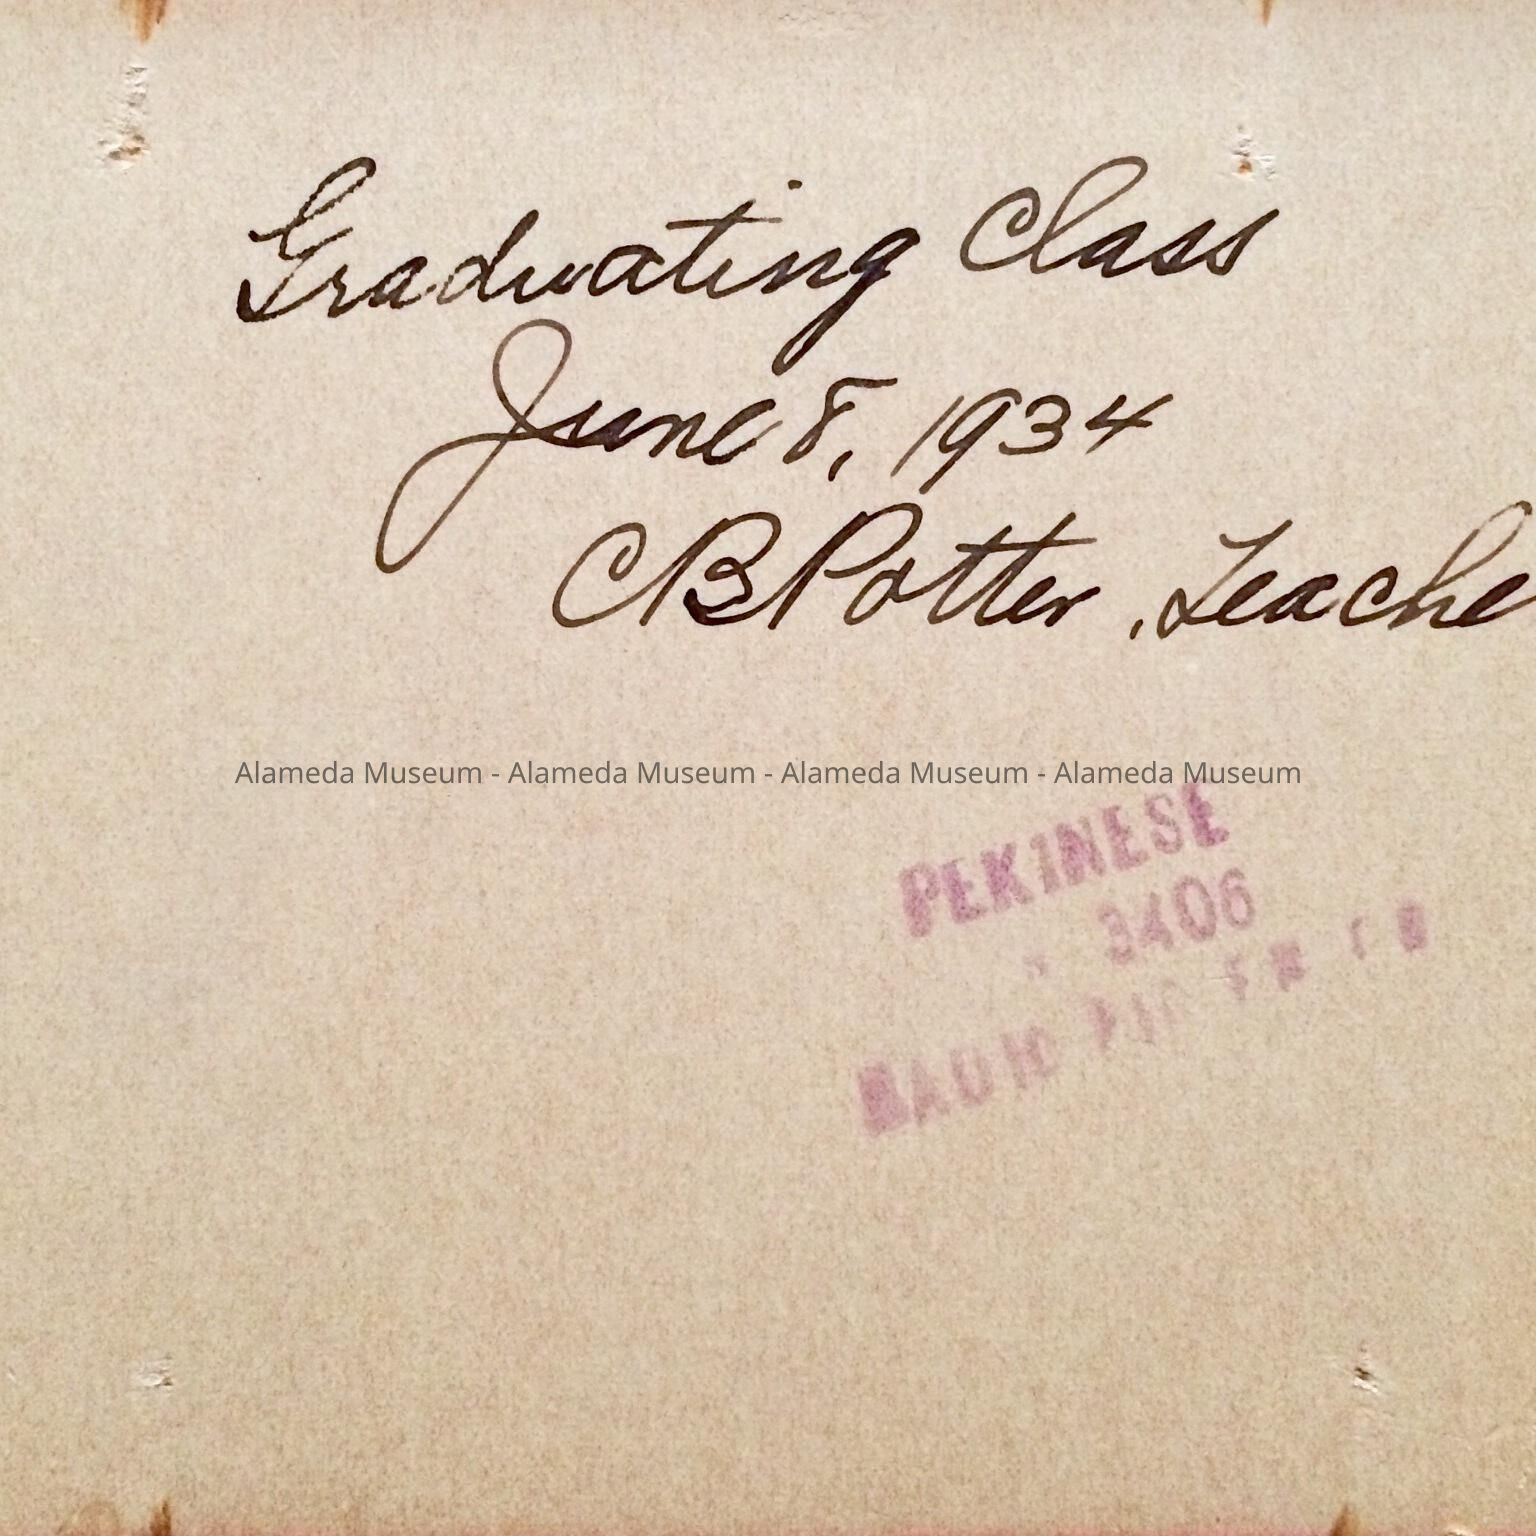 Graduating Class
June 8, 1934
CB Potter, Teache
Alameda Museum - Alameda Museum - Alameda Museum - Alameda Museum
PEKINESE
3406